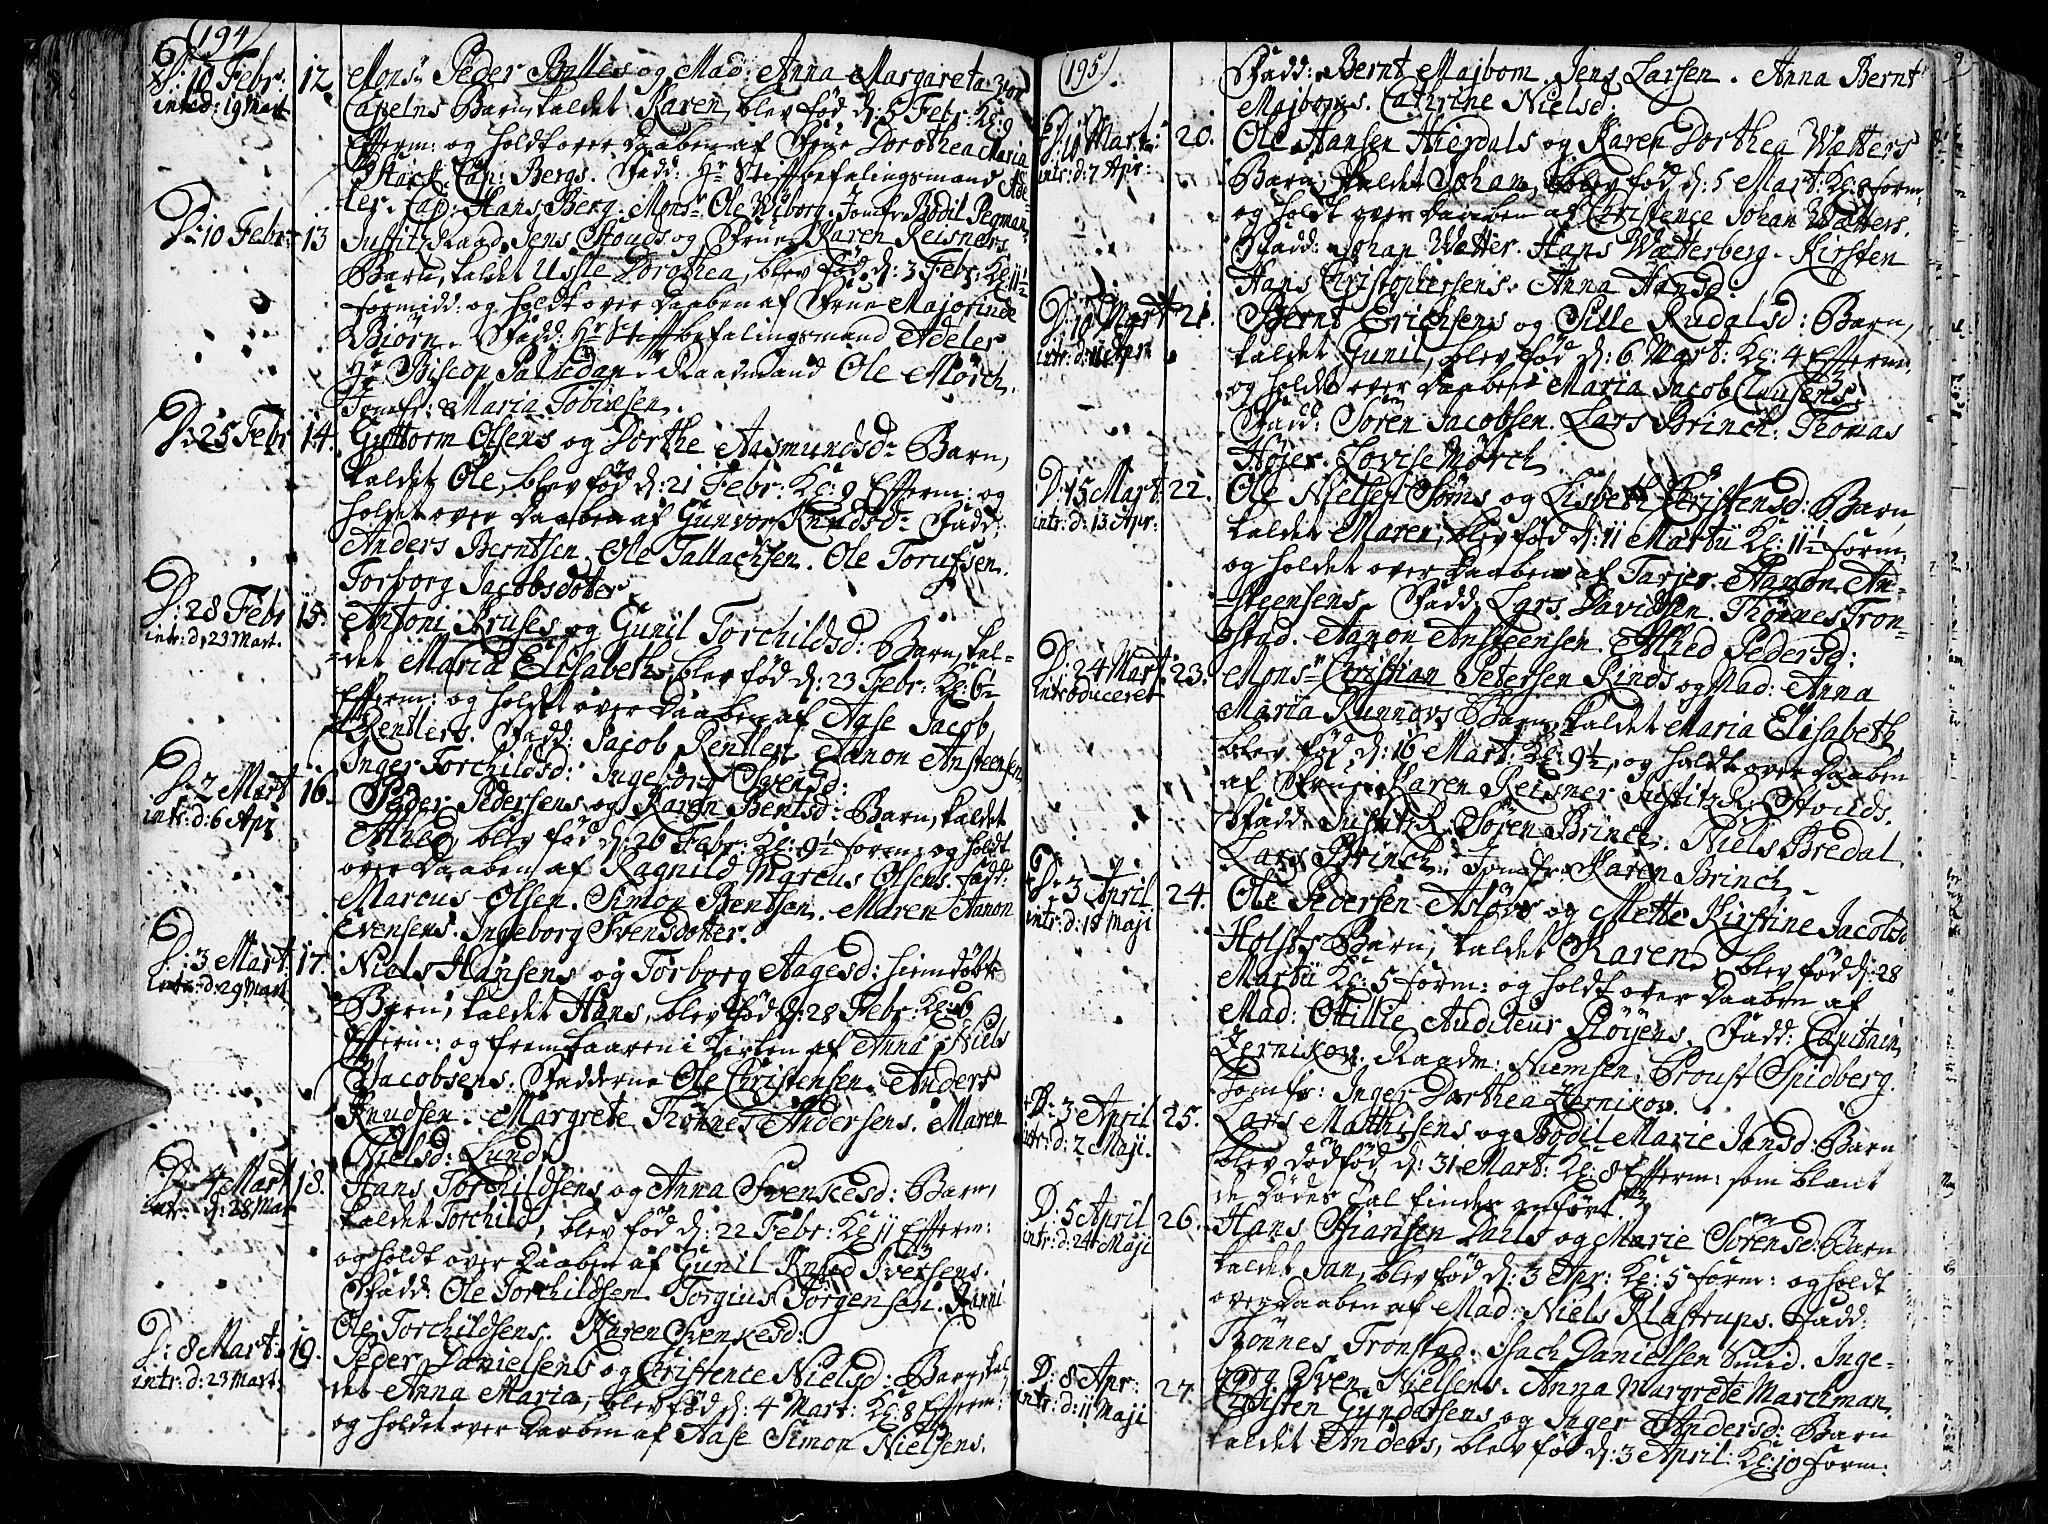 194
D: 10 Febr: 12. Mons:r Peder Balles og Mad: Anna Margareta von
introd: 19 Mart
Capelns Barn, kaldet Karen, blev fød d: 5 Febr: Kl: 9
Efterm: og holdt over Daaben af Frue Dorothea Maria
Stärck Cap: Bergs. Fadd: Hr Stiftbefalingsmand Ade-
ler. Cap: Hans Berg. Monsr Ole Wiborg. Jomfr Bodil Pegman.
D: 10 Febr: 13 Justitz Raad Jens Stouds og Frue Karen Reisners
Barn, kaldet Dorothea, blev fød d: 3 Febr: Kl: 11½
formidd: og holdt over Daaben af Frue Majorinde
Biörn. Fadd: Hr Stiftbefalingsmand Adeler
Hr Biscop. Raadmand Ole Mörch.
Jomfr: Maria Tobiæsen.
D: 25 Febr 14. Guttorm Olsens og Dorthe Aasmundsd: Barn,
kaldet Ole, blev fød d: 21 Febr: Kl: 9 Efterm: og
holdet over Daaben af Gunvor Knudsd: Fadd:
Anders Berntsen. Ole Tallachsen. Ole Torufsen.
Torborg Jacobsdotter
D: 28 Febr 15. Antoni Kruses og Gunil Torchildsd: Barn, kal-
intr: d: 23 Mart.
det Maria Elisabeth, blev fød d: 23 Febr: Kl: 6
Efterm: og holdt over Daaben af Aase Jacob
Rentlers. Fadd: Jacob Rentler. Aanon Ansteensen
Inger Torchildsd: Ingeborg Svensd:
D: 2 Mart 16. Peder Pedersens og Karen Bentsd: Barn, kaldet
intr: d: 6 Apr
Athed, blev fød d: 26 Febr: Kl: 9½ form: og holdt
over Daaben af Ragnild Marcus Olsens. Fadd:
Marcus Olsen. Simon Bentsen. Maren Aanon
Evensens. Ingeborg Svensdotter.
D: 3 Mart: 17. Niels Hansens og Torborg Aagesd: hiemdøbte
intr: d: 29 Mart
Barn, kaldet Hans, blev fød d: 28 Febr: Kl: 6
Efterm: og frembaaren i Kirken af Anna Niels
Jacobsens. Fadderne Ole Christensen. Anders
Knudsen. Margrete Thönnes Andersens. Maren
Nielsd: Lund.
D: 4 Mart 18. Hans Torchildsens og Anna Svenkesd: Barn,
intr: d: 28 Mar
kaldet Torchild, blev fød d: 22 Febr: Kl 11 Efterm:
og holdt over Daaben af Gunil Knud Iversens.
Fadd: Ole Torchildsen. Torgius Törgensen. Ranni
Ole Torchildsens. Karen Svenkesd:
D: 8 Mart: 19. Peder Danielsens og Christence Nielsd: Barn, kal-
intr: d: 23 Mart.
det Anna Maria, blev fød d: 4 Mart: Kl: 8 Efterm:
og holdet over Daaben af Aase Simon Nielsens.
195.
Fadd: Bernt Majbom. Jens Larsen. Anna Bernt
Majboms. Cathrine Nielsd:
D: 10 Mart: 20. Ole Hansen Hierdals og Karen Dorthea Wetters
intr: d: 7 Apr:
Barn, kaldet Johan, blev fød d: 5 Mart: Kl: 8 form.
og holdt over Daaben af Christence Johan Wetters.
Fadd: Johan Wetter. Hans Wetterberg. Kirsten
Hans Christophersens. Anna Hansd:
D: 10 Mart 21. Bernt Erichsens og Sille Rudalsd: Barn,
intr: d: 11 Apr
kaldet Gunil, blev fød d: 6 Mart: Kl: 4 Efterm:
og holdt over Daaben Maria Jacob Clausens.
Fadd: Sören Jacobsen. Lars Brinch. Thomas
Höjer. Lovise Mörch
D: 15 Mart: 22. Ole Nielsen Söms og Lisbeth Christensd: Barn,
intr: d: 13 Apr:
kaldet Maren, blev fød d: 11 Martii Kl: 11½ form:
og holdet over Daaben af Tarjer Aanon An-
steensens. Fadd: Lars Davidsen. Thönnes Tron-
stad. Aanon Ansteensen. Athed Pedersd:
D: 24 Mart: 23. Monsr Christian Petersen Kinds og Mad: Anna
introduceret
Maria Runnovs Barn, kaldet Maria Elisabeth,
blev fød d: 16 Mart: Kl: 9½, og holdt over Daaben
af Frue Karen Reisner Justitz R: Stouds.
Fadd: Justitz R: Sören Brinch. Niels Bredal
Lars Brinch. Jomfr: Karen Brinch.
D: 3 April 24. Ole Pedersen Aslövs og Mette Kirstine Jacobsd
intr: d: 18 Maji
Holsts Barn, kaldet Karen, blev fød d: 28
Martii Kl: 5 form: og holdt over Daaben af
Mad: Otillie Auditeur Plöyens. Fadd: Capitain
Zernikov. Raadm: Niemsen. Proust Spidberg.
Jomfr: Inger Dorthea Zernikov.
D: 3 April 25. Lars Matthisens og Bodil Marie Jansd: Barn
intr: d: 2 Maji.
blev dødfød d: 31 Mart: Kl: 8 Efterm: som blant
de Dødes Tal findes anført.
D: 5 April 26. Hans Stiansen Dahls og Marie Sörensd: Barn
intr: d: 24 Maji
kaldet Jan, blev fød d: 3 Apr: Kl: 5 form: og holdt
over Daaben af Mad: Niels Klastrups. Fadd:
Thönnes Tronstad. Isach Danielsen Smid. Inge-
borg Sven Nielsens. Anna Margrete Marchman.
D: 8 Apr: 27. Christen Gundersens og Inger Andersd: Barn
intr: d: 11 Maji
kaldet Anders, blev fød d: 3 April: Kl: 10 form: